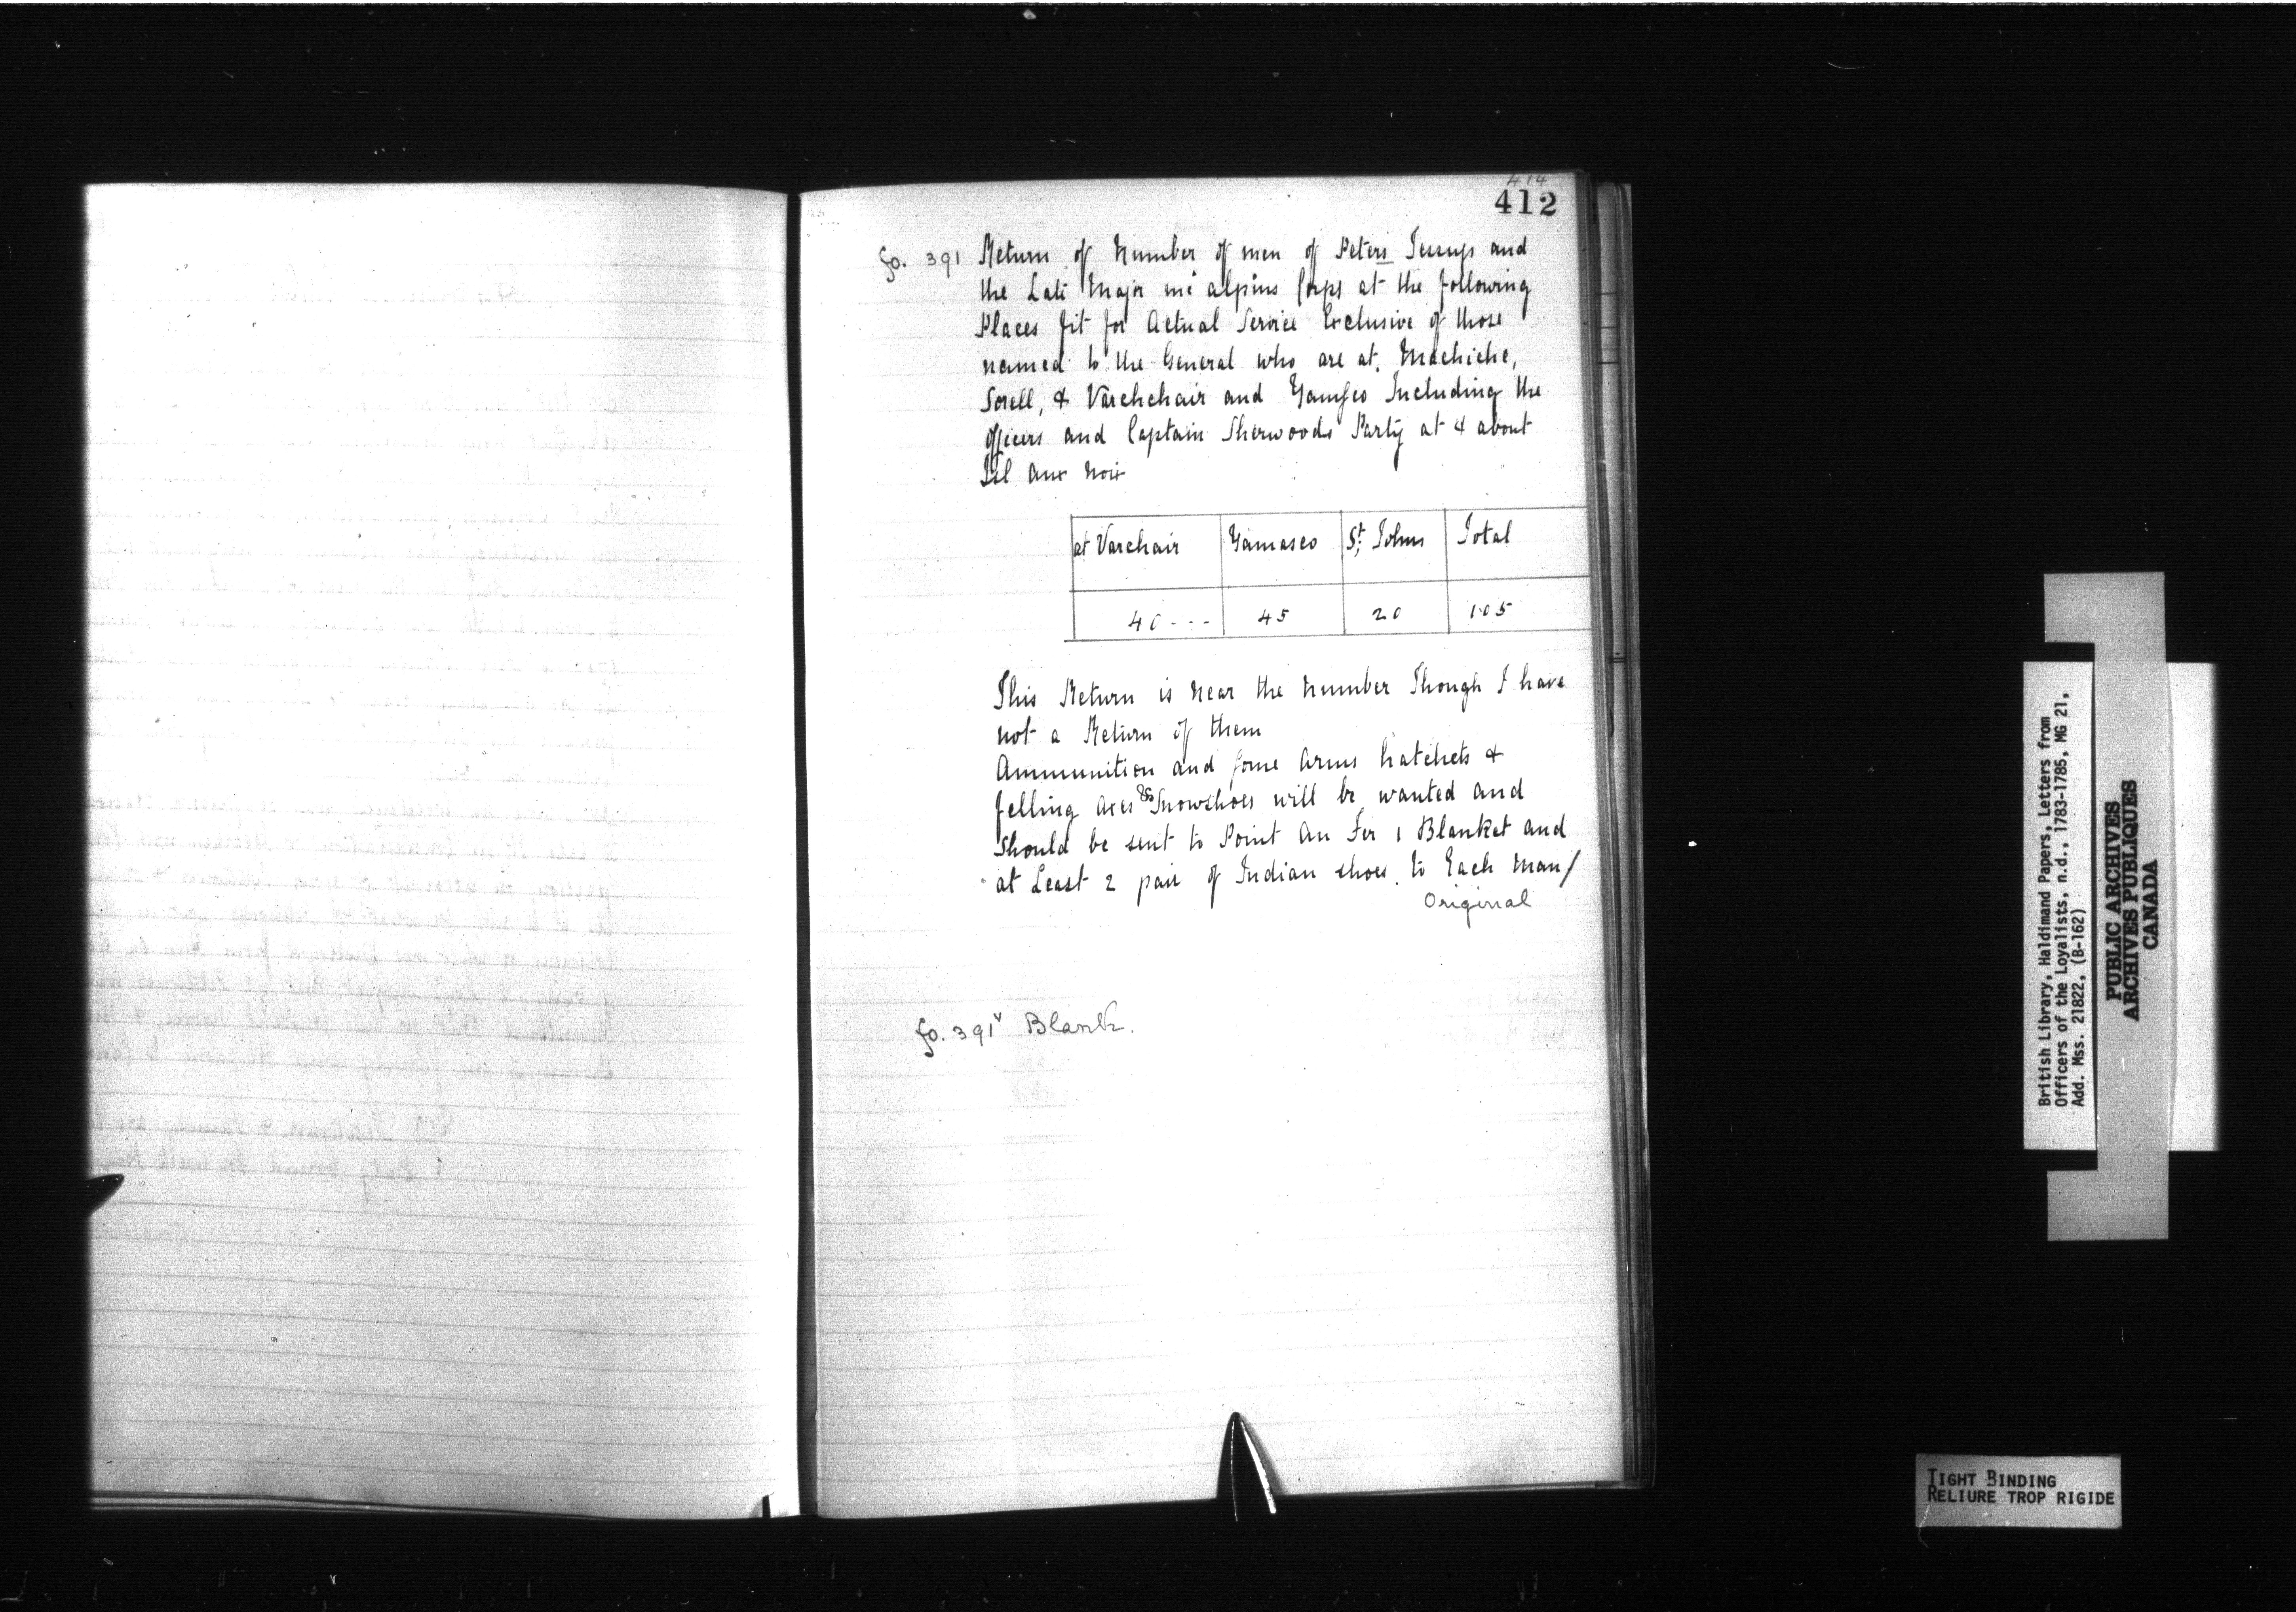 414
412
fo. 391 Return of Number of men of Peters Jessups and
the Late Major mc alpins Corps at the following
Places fit for Actual Service Exclusive of those
named to the General who are at. Machiche,
Sorell, & Varchchair and Yamseo Including the
officers and Captain Sherwoods Party at & about
Isl aux Noix
at Varchair Yamaseo St, Johns Total
40 --- 45 20 105
This Return is near the number Though I have
not a Return of them
Ammunition and some Arms hatchets &
felling axes & Snowshoes will be wanted and
Should be sent to Point Au Fer 1 Blanket and
at Least 2 pair of Indian shoes to Each Man/
Original
fo. 391v Blank.
British Library, Haldimand Papers, Letters from
Officers of the Loyalists, n.d., 1783-1785, MG 21,
Add. Mss. 21822, (B-162)
PUBLIC ARCHIVES
ARCHIVES PUBLIQUES
CANADA
TIGHT BINDING
RELIURE TROP RIGIDE